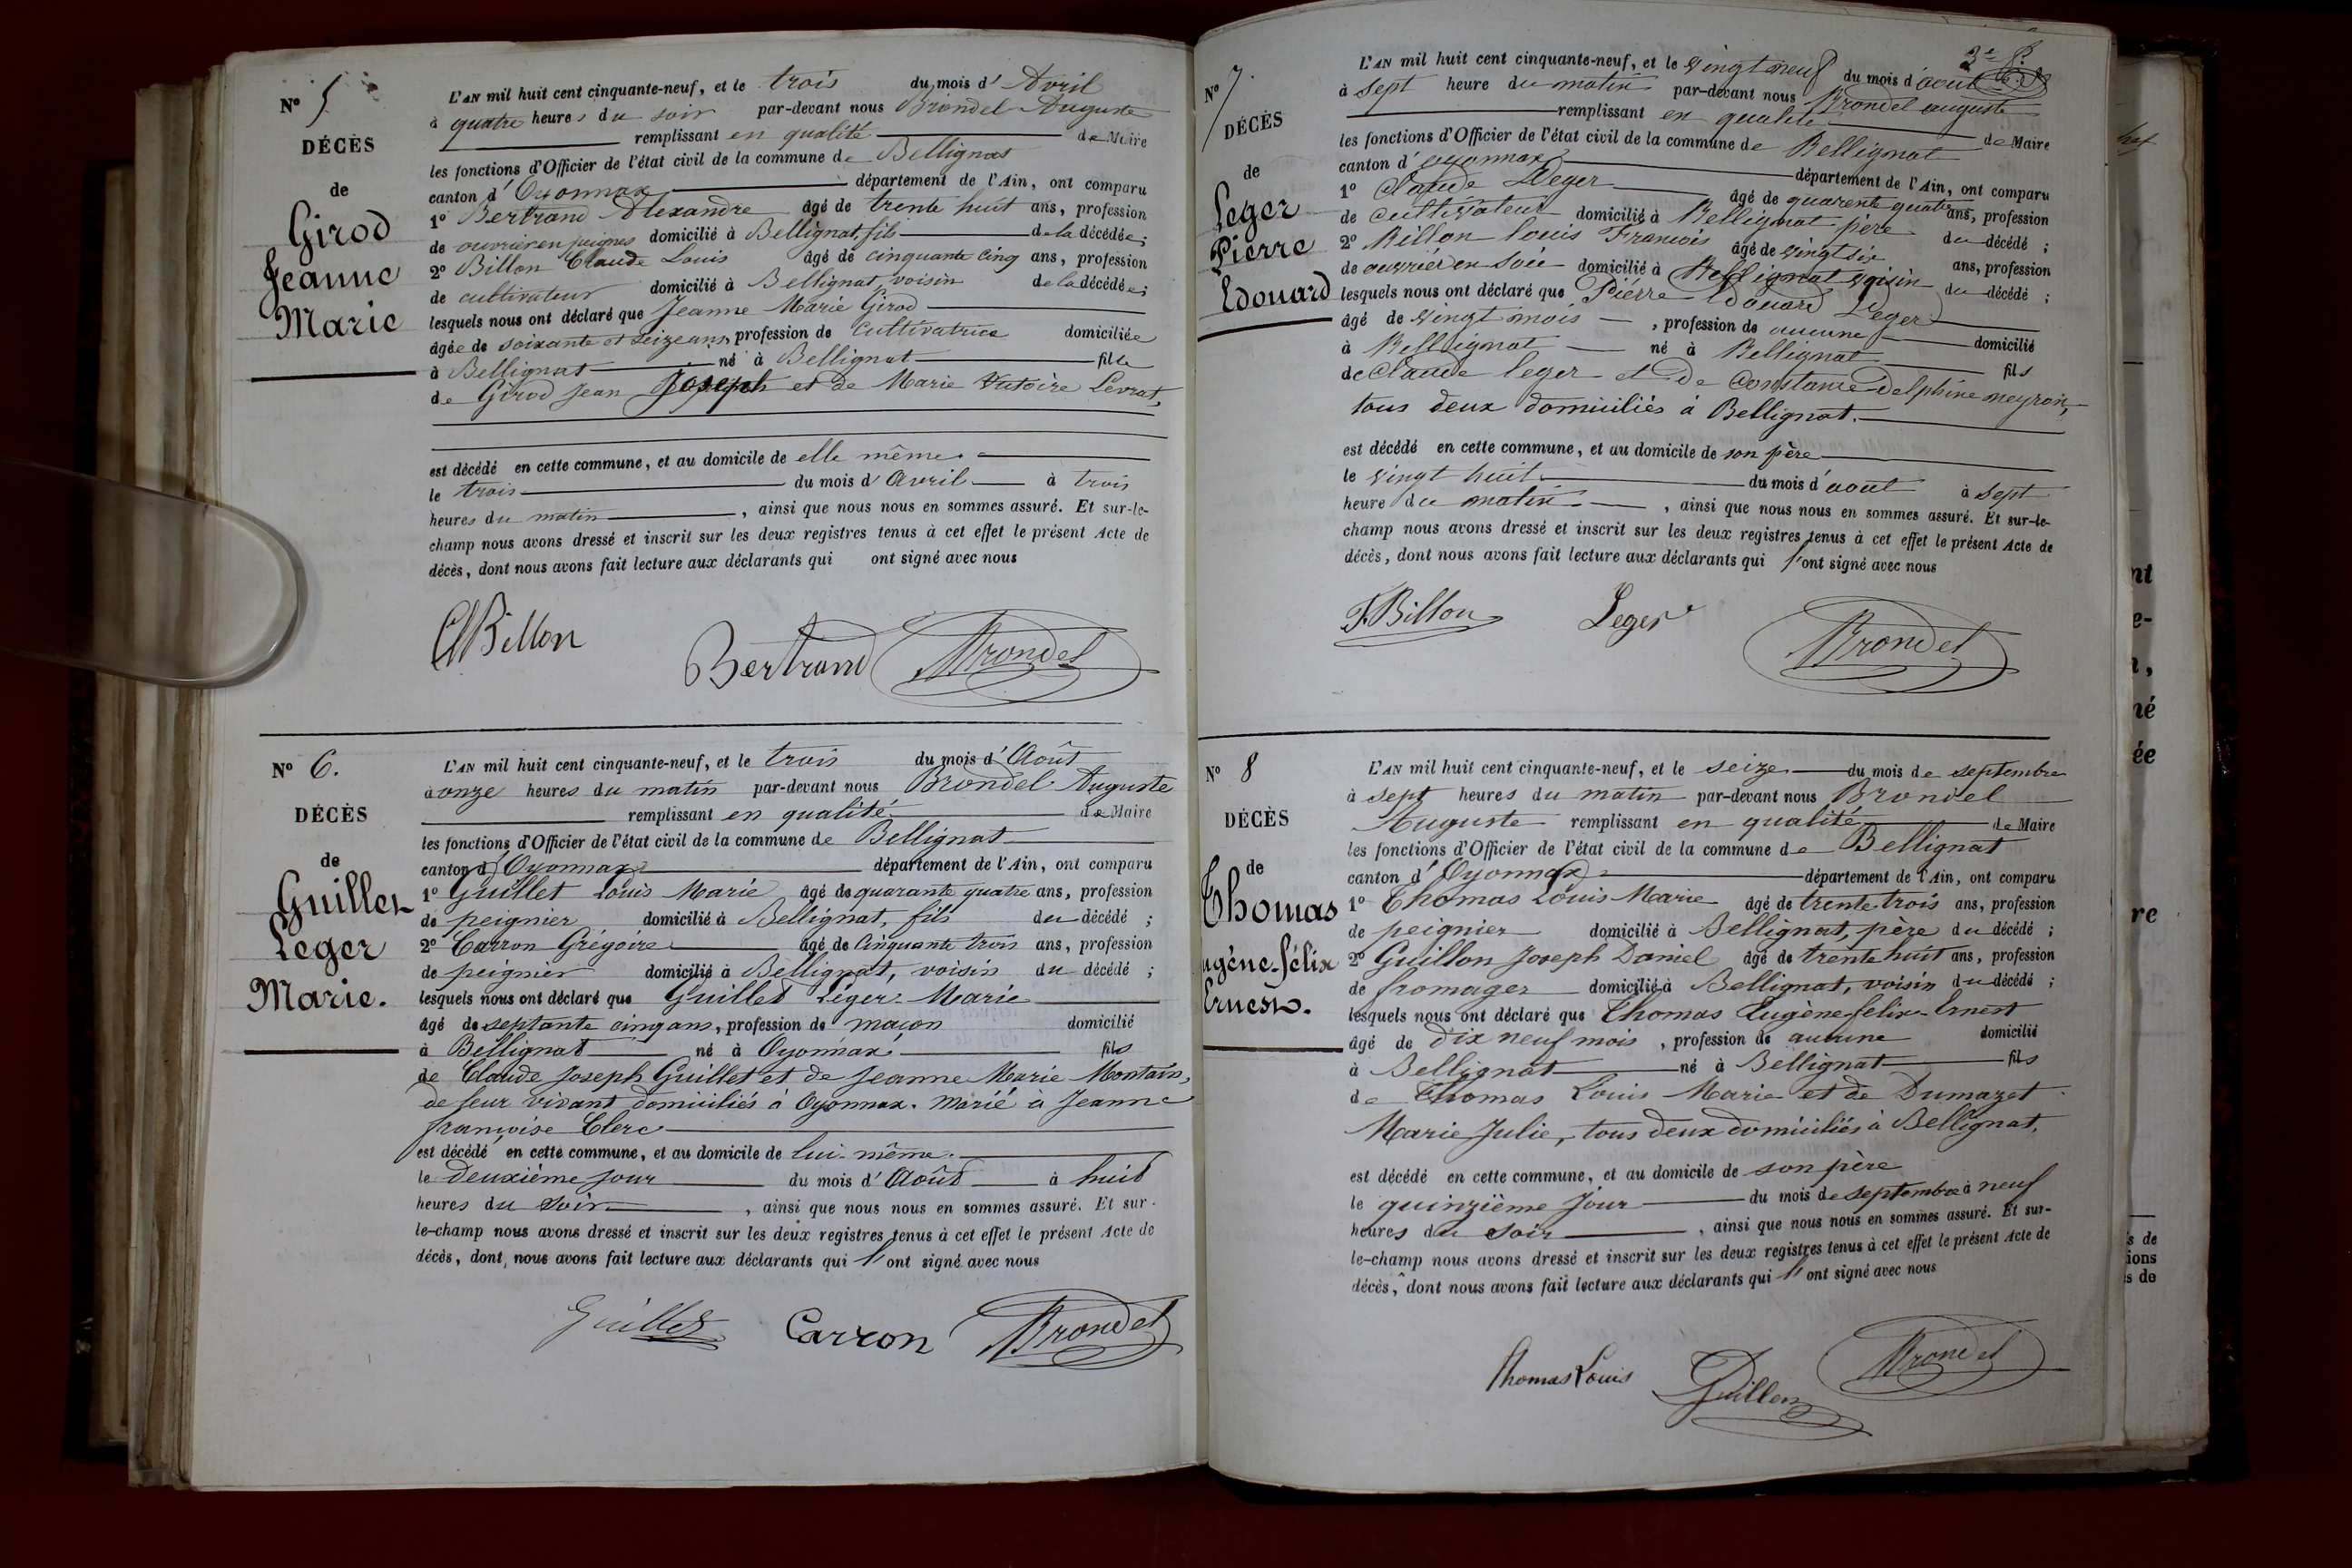 N° 5
DÉCÈS
de
Girod
Jeanne
Marie
L'AN mil huit cent cinquante-neuf, et le trois du mois d'Avril
à quatre heures du soir par-devant nous Brondel Auguste
remplissant en qualité de Maire
les fonctions d'Officier de l'état civil de la commune de Bellignat
canton d'Oyonnax département de l'Ain, ont comparu
1° Bertrand Alexandre âgé de trente huit ans, profession
de ouvrier en peignes domicilié à Bellignat, fils de la décédée;
2° Billon Claude Louis âgé de cinquante cinq ans, profession
de cultivateur domicilié à Bellignat, voisin de la décédée;
lesquels nous ont déclaré que Jeanne Marie Girod
âgée de soixante et seize ans, profession de cultivatrice domiciliée
à Bellignat né à Bellignat fille
de Girod Jean Joseph et de Marie Levrat,
est décédé en cette commune, et au domicile de elle même.
le trois du mois d'Avril à trois
heures du matin, ainsi que nous nous en sommes assuré. Et sur-le-
champ nous avons dressé et inscrit sur les deux registres tenus à cet effet le présent Acte de
décès, dont nous avons fait lecture aux déclarants qui ont signé avec nous
Billon Bertrand Brondel
N° 6.
DÉCÈS
de
Guillet
Leger
Marie.
L'AN mil huit cent cinquante-neuf, et le trois du mois d'Août
à onze heures du matin par-devant nous Brondel Auguste
remplissant en qualité de Maire
les fonctions d'Officier de l'état civil de la commune de Bellignat
canton d'Oyonnax département de l'Ain, ont comparu
1° Guillet Louis Marie âgé de quarante quatre ans, profession
de peignier domicilié à Bellignat, fils du décédé ;
2° Carron Grégoire âgé de Cinquante trois ans, profession
de peignier domicilié à Bellignat, voisin du décédé ;
lesquels nous ont déclaré que Guillet Léger Marie
âgé de septante cinq ans, profession de maçon domicilié
à Bellignat né à Oyonnax fils
de Claude Joseph Guillet et de Jeanne Marie Montain,
de leur vivant domiciliés à Oyonnax. Marié à Jeanne
françoise Clerc
est décédé en cette commune, et au domicile de lui-même.
le deuxième jour du mois d'Août à huit
heures du soir, ainsi que nous nous en sommes assuré. Et sur-
le-champ nous avons dressé et inscrit sur les deux registres tenus à cet effet le présent Acte de
décès, dont nous avons fait lecture aux déclarants qui l'ont signé avec nous
Guillet Carron Brondel
N° 7.
DÉCÈS
de
Leger
Pierre
Edouard
L'AN mil huit cent cinquante-neuf, et le vingt neuf du mois d'aout
à sept heure du matin par-devant nous Brondel auguste
remplissant en qualité de Maire
les fonctions d'Officier de l'état civil de la commune de Bellignat
canton d'oyonnax département de l'Ain, ont comparu
1° Claude Leger âgé de quarente quatre ans, profession
de cultivateur domicilié à Bellignat père du décédé ;
2° Billon louis François âgé de vingt six ans, profession
de ouvrier en soie domicilié à Bellignat voisin du décédé ;
lesquels nous ont déclaré que Pierre Edouard Leger
âgé de vingt mois, profession de aucune domicilié
à Bellignat né à Bellignat fils
de Claude leger et de Constance Delphine neyron,
tous deux domiciliés à Bellignat.
est décédé en cette commune, et au domicile de son père
le vingt huit du mois d'aout à sept
heure du matin, ainsi que nous nous en sommes assuré. Et sur-le-
champ nous avons dressé et inscrit sur les deux registres tenus à cet effet le présent Acte de
décès, dont nous avons fait lecture aux déclarants qui l'ont signé avec nous
F. Billon Leger Brondel
N° 8
DÉCÈS
de
Thomas
ugène-félix
Ernest.
L'AN mil huit cent cinquante-neuf, et le seize du mois de septembre
à sept heures du matin par-devant nous Brondel
Auguste remplissant en qualité de Maire
les fonctions d'Officier de l'état civil de la commune de Bellignat
canton d'Oyonnax département de l'Ain, ont comparu
1° Thomas Louis Marie âgé de trente trois ans, profession
de peignier domicilié à Bellignat, père du décédé ;
2° Guillon Joseph Daniel âgé de trente huit ans, profession
de fromager domicilié à Bellignat, voisin du décédé ;
lesquels nous ont déclaré que Thomas Eugène felix Ernest
âgé de dix neuf mois, profession de aucune domicilié
à Bellignat né à Bellignat fils
de Thomas Louis Marie et de Dumazet
Marie Julie, tous deux domiciliés à Bellignat,
est décédé en cette commune, et au domicile de son père
le quinzième jour du mois de septembre à neuf
heures du soir, ainsi que nous nous en sommes assuré. Et sur-
le-champ nous avons dressé et inscrit sur les deux registres tenus à cet effet le présent Acte de
décès, dont nous avons fait lecture aux déclarants qui l'ont signé avec nous
Thomas Louis Guillon Brondel